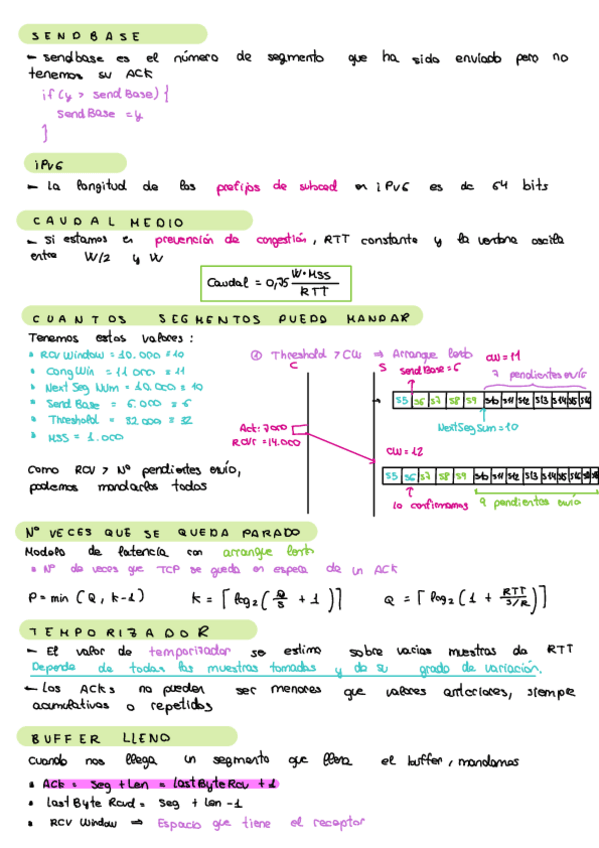 SENDBASE
- sendbase es el número de segmento que ha sido enviado pero no
tenemos su ACK
if (y > sendBase) {
SendBase = y
}
iPv6
- La longitud de los prefijos de subred en iPv6 es de 64 bits
CAUDAL MEDIO
- Si estamos en prevención de congestión, RTT constante y la ventana oscila
entre W/2 y W
Caudal = 0,75 W·MSS / RTT
CUANTOS SEGMENTOS PUEDO MANDAR
Tenemos estos valores:
• RCV Window = 10.000 ≡ 10
• CongWin = 11000 ≡ 11
• Next Seg Num = 10.000 ≡ 10
• Send Base = 6.000 ≡ 6
• Threshold = 32000 ≡ 32
• MSS = 1.000
Como RCV > Nº pendientes envío,
podemos mandarlos todos
① Threshold > CW ⇒ Arranque lento
C
S
CW = 11
sendBase = 6
7 pendientes envío
S5 S6 S7 S8 S9 S10 S11 S12 S13 S14 S15 S16
NextSegSum = 10
Act: 7000
RCVR = 14.000
CW = 12
S5 S6 S7 S8 S9 S10 S11 S12 S13 S14 S15 S16
lo confirmamos
9 pendientes envío
Nº VECES QUE SE QUEDA PARADO
Modelo de latencia con arranque lento
• Nº de veces que TCP se queda en espera de un ACK
P = min (Q, k-1)
K = ⌈log2(O/S + 1)⌉
Q = ⌈log2(1 + RTT / S/R)⌉
TEMPORIZADOR
- El valor de temporizador se estima sobre varias muestras da RTT
Depende de todas las muestras tomadas y de su grado de variación.
- Los ACKs no pueden ser menores que valores anteriores, siempre
acumulativos o repetidos
BUFFER LLENO
Cuando nos llega un segmento que llena el buffer, mandamos
• Ack = seg + Len = lastByteRcv + 1
• lastByte Rcvd = seg + len - 1
• RCV Window ⇒ Espacio que tiene el receptor